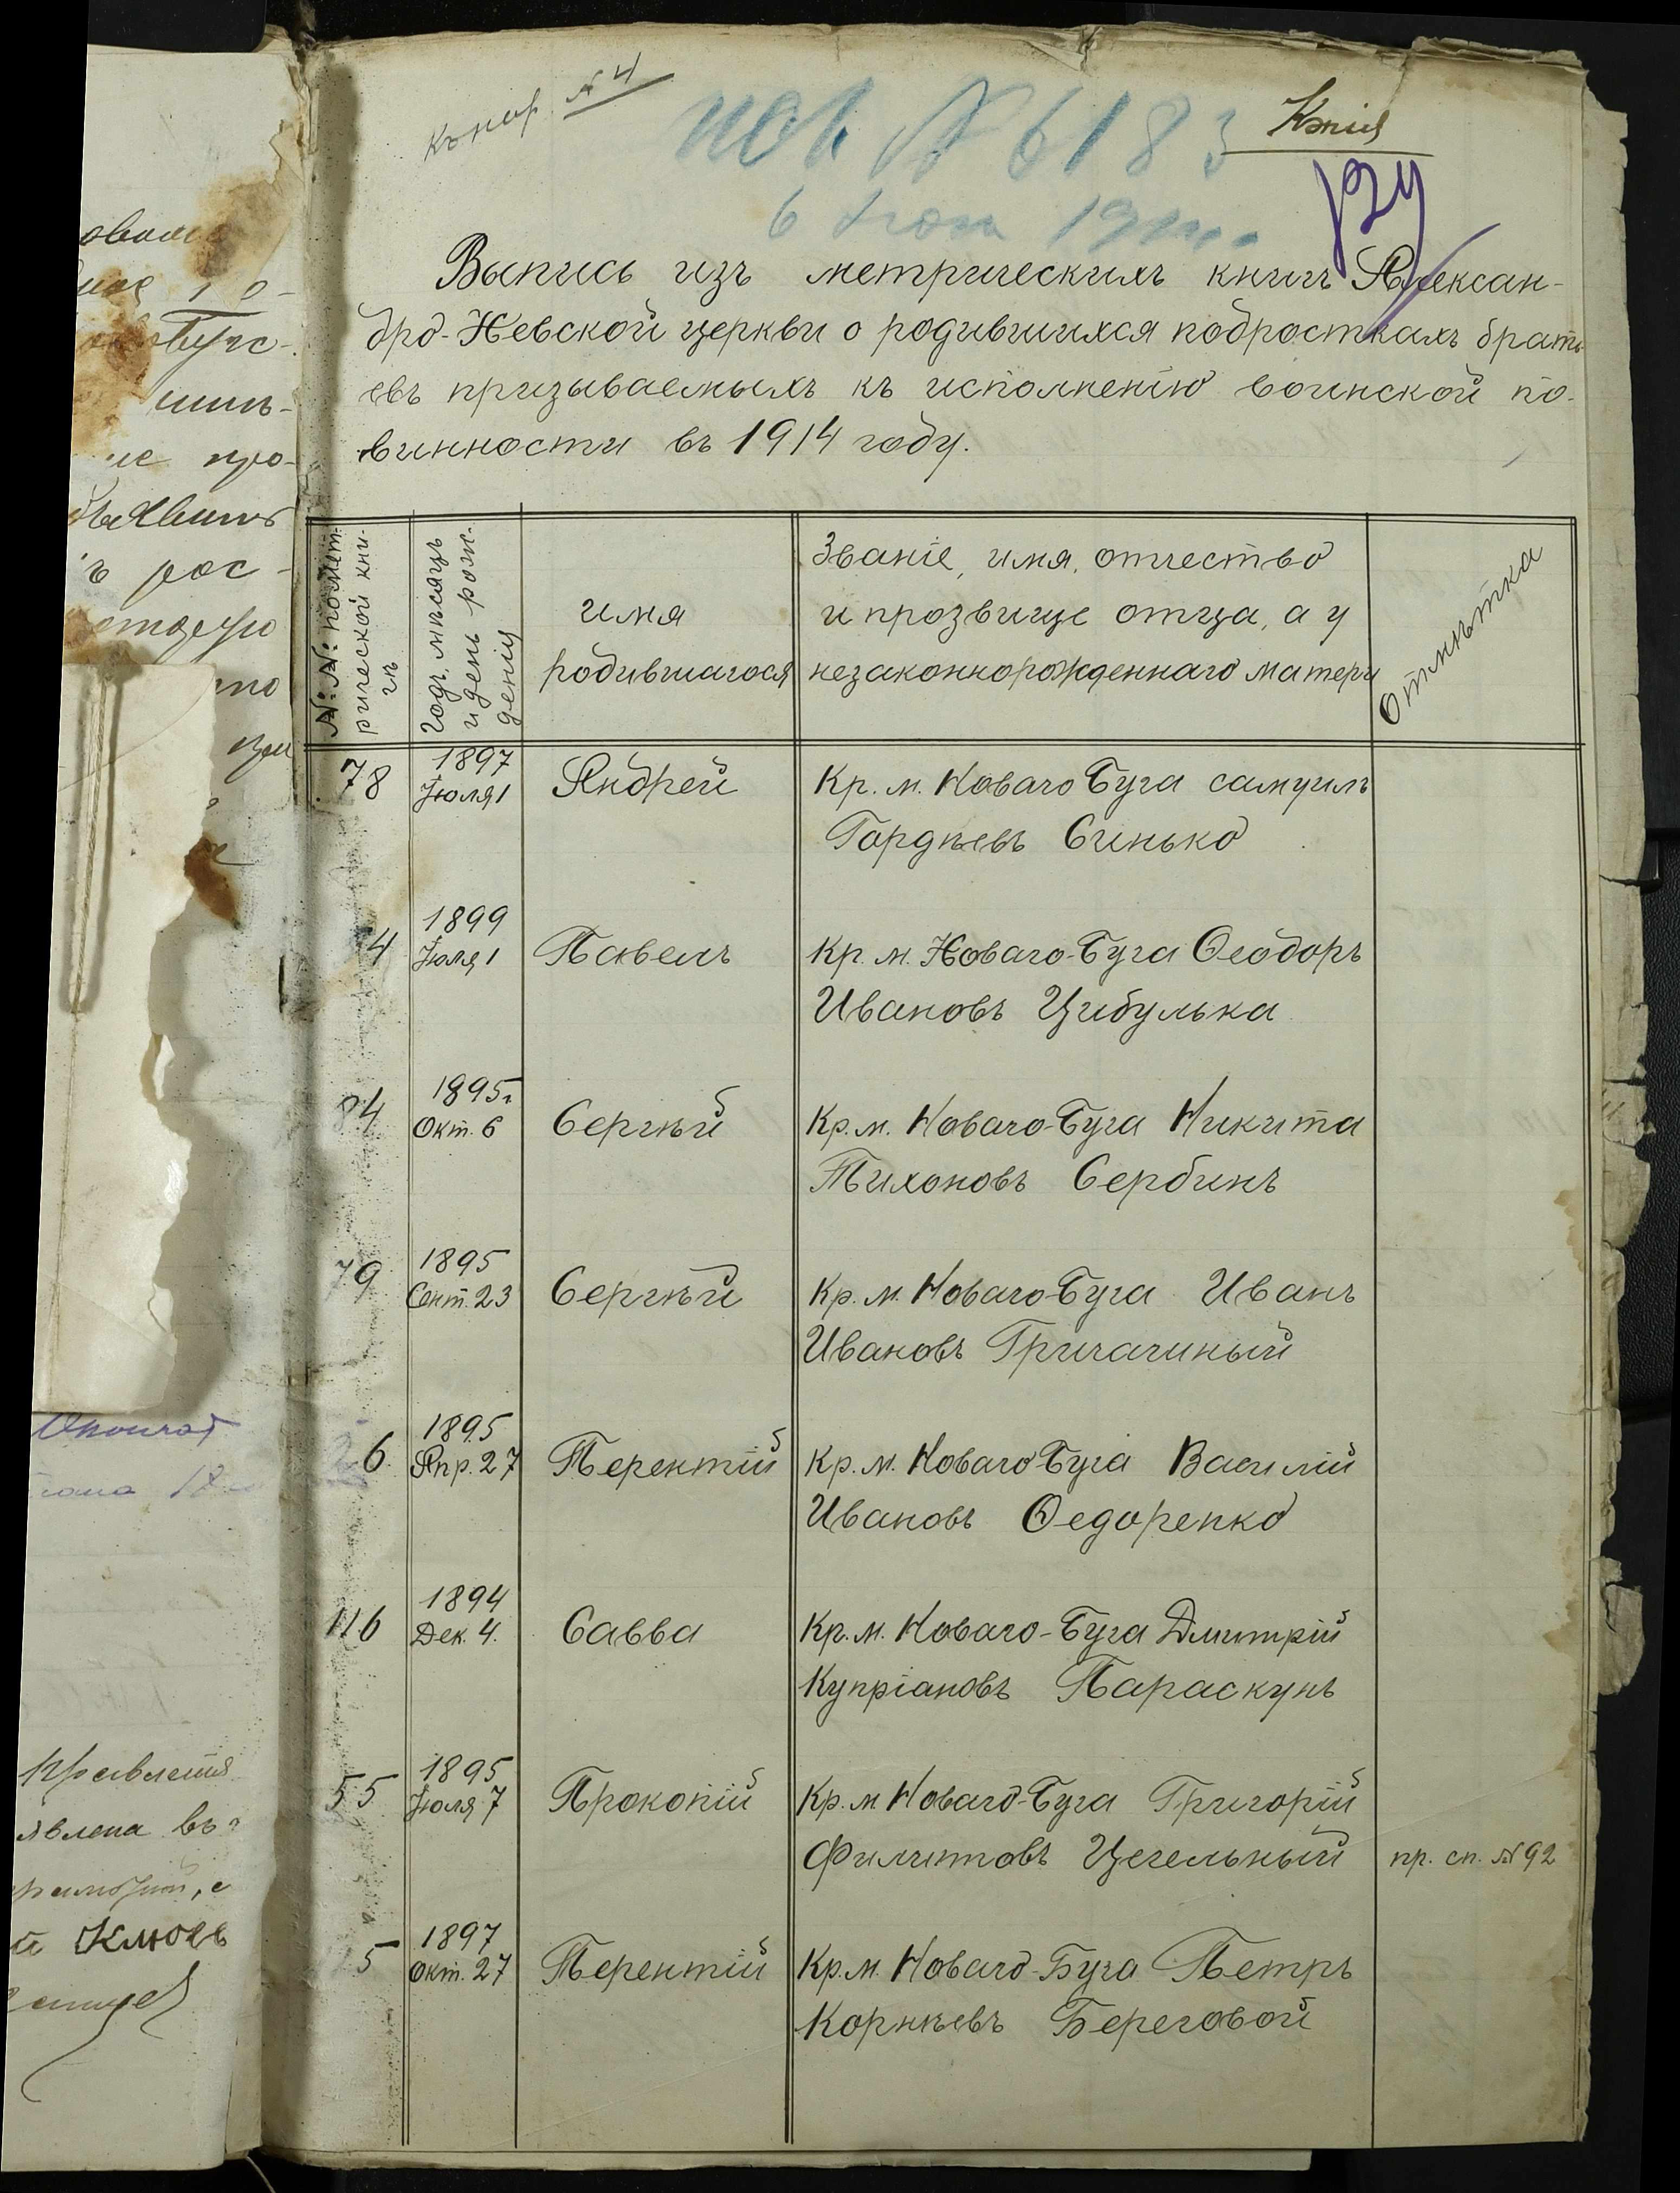 Копія
№ 4
№ 6183
Выпись изъ метрическихъ книгъ Алексан-
дро-Невской церкви о родившихся подросткахъ брать-
евъ призываемыхъ къ исполненію воинской по-
винности въ 1914 году.
№: №: по метрической книгѣ
Годъ, мѣсяцъ и день рожденія
имя
родившагося
Званіе, имя, отчество
и прозвище отца, а у
незаконнорожденнаго матери
Отмѣтка
78
1897
Іюля 1
Андрей
Кр. м. Новаго Буга самуилъ
Гордѣевъ Синько
4
1899
Іюля 1
Павелъ
Кр. м. Новаго-Буга Ѳеодоръ
Ивановъ Цибулька
84
1895г
Окт. 6
Сергѣй
Кр. м. Новаго-Буга Никита
Тихоновъ Сербинъ
79
1895
Сент. 23
Сергѣй
Кр. м. Новаго-Буга Иванъ
Ивановъ
26
1895
Апр. 27
Терентій
Кр. м. Новаго-Буга Василій
Ивановъ Ѳедоренко
116
1894
Дек. 4.
Савва
Кр. м. Новаго-Буга Дмитрій
Купріановъ Параскунъ
55
1895
Іюля 7
Прокопій
Кр. м Новаго-Буга Григорій
Филиповъ Цегельный
пр. сп. № 92
5
1897
Окт. 27
Терентій
Кр. м. Новаго-Буга Петръ
Корнѣевъ Береговой